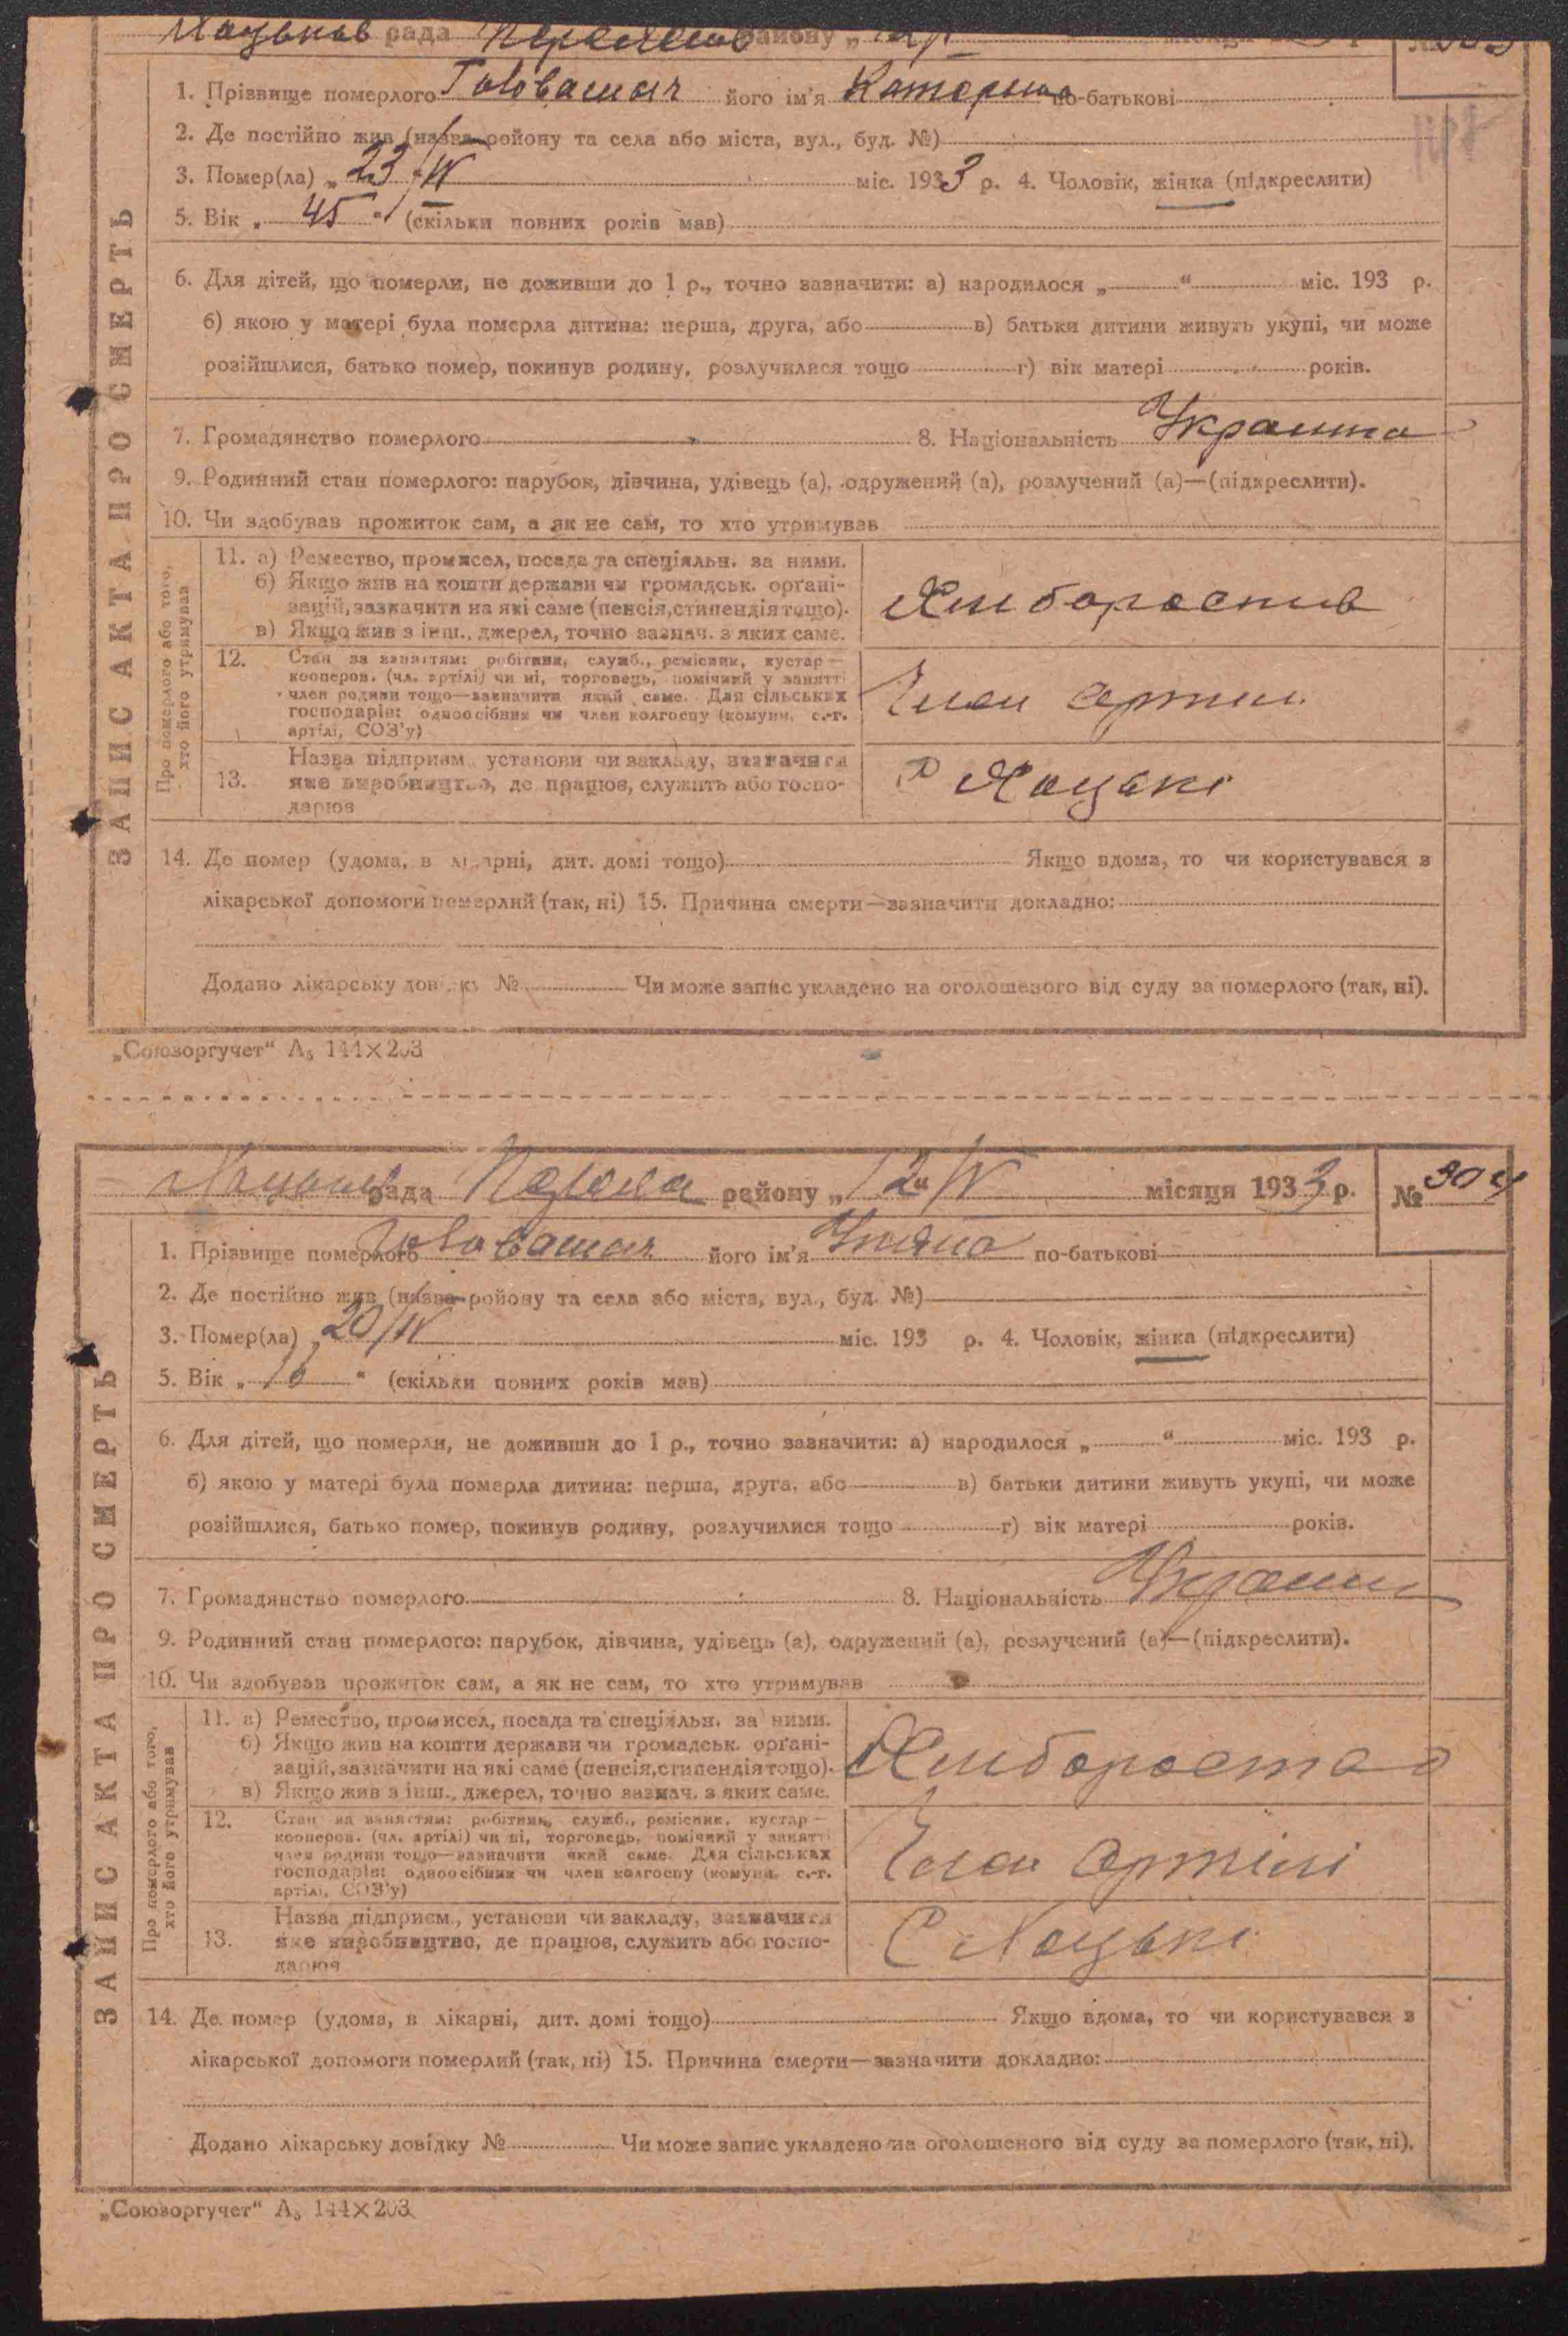 Хоцьках рада Переяслав району „12/V
1. Прізвище померлого Головашич його ім'я Катерина по-батькові
2. Де постійно жив (назва ройону та села або міста, вул., буд. №)
3. Помер(ла) „23/IV міс. 1933 р. 4. Чоловік, жінка (підкреслити)
5. Вік „45“ (скільки повних років мав)
6. Для дітей, що померли, не доживши до 1 р., точно зазначити: а) народилося „ “ міс. 193 р.
б) якою у матері була померла дитина: перша, друга, або в) батьки дитини живуть укупі, чи може
розійшлися, батько помер, покинув родину, розлучилися тощо г) вік матері років.
7. Громадянство померлого 8. Національність Украинка
9. Родинний стан померлого: парубок, дівчина, удівець (а), одружений (а), розлучений (а)—(підкреслити).
10. Чи здобував прожиток сам, а як не сам, то хто утримував
ЗАПИС АКТА ПРО СМЕРТЬ
Про померлого або того,
хто його утримував
11. а) Ремество, промисел, посада та спеціяльн. за ними.
б) Якщо жив на кошти держави чи громадськ. орґані-
зацій, зазначити на які саме (пенсія, стипендія тощо).
в) Якщо жив з інш., джерел, точно зазнач. з яких саме.
Хлиборостив
12. Стан за заняттям: робітник, служб., ремісник, кустар—
кооперов. (чл. артілі) чи ні, торговець, помічний у занятті
член родини тощо—зазначити який саме. Для сільських
господарів: одноосібник чи член колгоспу (комуни, с.-г.
артілі, СОЗ'у)
Член артили
13. Назва підприєм., установи чи закладу, зазначити
яке виробництво, де працює, служить або госпо-
дарює
Хоцькі
14. Де помер (удома, в лікарні, дит. домі тощо) Якщо вдома, то чи користувався з
лікарської допомоги померлий (так, ні) 15. Причина смерти—зазначити докладно:
Додано лікарську довідку № Чи може запис укладено на оголошеного від суду за померлого (так, ні).
„Союзоргучет“ А₅ 144×203
рада району „12“/V місяця 1933 р. № 304
1. Прізвище померлого Головашич його ім'я Уляна по-батькові
2. Де постійно жив (назва ройону та села або міста, вул., буд. №)
3. Помер(ла) „20/IV міс. 193 р. 4. Чоловік, жінка (підкреслити)
5. Вік „16“ (скільки повних років мав)
6. Для дітей, що померли, не доживши до 1 р., точно зазначити: а) народилося „ “ міс. 193 р.
б) якою у матері була померла дитина: перша, друга, або в) батьки дитини живуть укупі, чи може
розійшлися, батько помер, покинув родину, розлучилися тощо г) вік матері років.
7. Громадянство померлого 8. Національність
9. Родинний стан померлого: парубок, дівчина, удівець (а), одружений (а), розлучений (а)—(підкреслити).
10. Чи здобував прожиток сам, а як не сам, то хто утримував
ЗАПИС АКТА ПРО СМЕРТЬ
Про померлого або того,
хто його утримував
11. а) Ремество, промисел, посада та спеціяльн. за ними.
б) Якщо жив на кошти держави чи громадськ. орґані-
зацій, зазначити на які саме (пенсія, стипендія тощо).
в) Якщо жив з інш., джерел, точно зазнач. з яких саме.
12. Стан за заняттям: робітник, служб., ремісник, кустар—
кооперов. (чл. артілі) чи ні, торговець, помічний у занятті
член родини тощо—зазначити який саме. Для сільських
господарів: одноосібник чи член колгоспу (комуни, с.-г.
артілі, СОЗ'у)
Член артілі
13. Назва підприєм., установи чи закладу, зазначити
яке виробництво, де працює, служить або госпо-
дарює
С Хоцькі
14. Де помер (удома, в лікарні, дит. домі тощо) Якщо вдома, то чи користувався з
лікарської допомоги померлий (так, ні) 15. Причина смерти—зазначити докладно:
Додано лікарську довідку № Чи може запис укладено на оголошеного від суду за померлого (так, ні).
„Союзоргучет“ А₅ 144×203